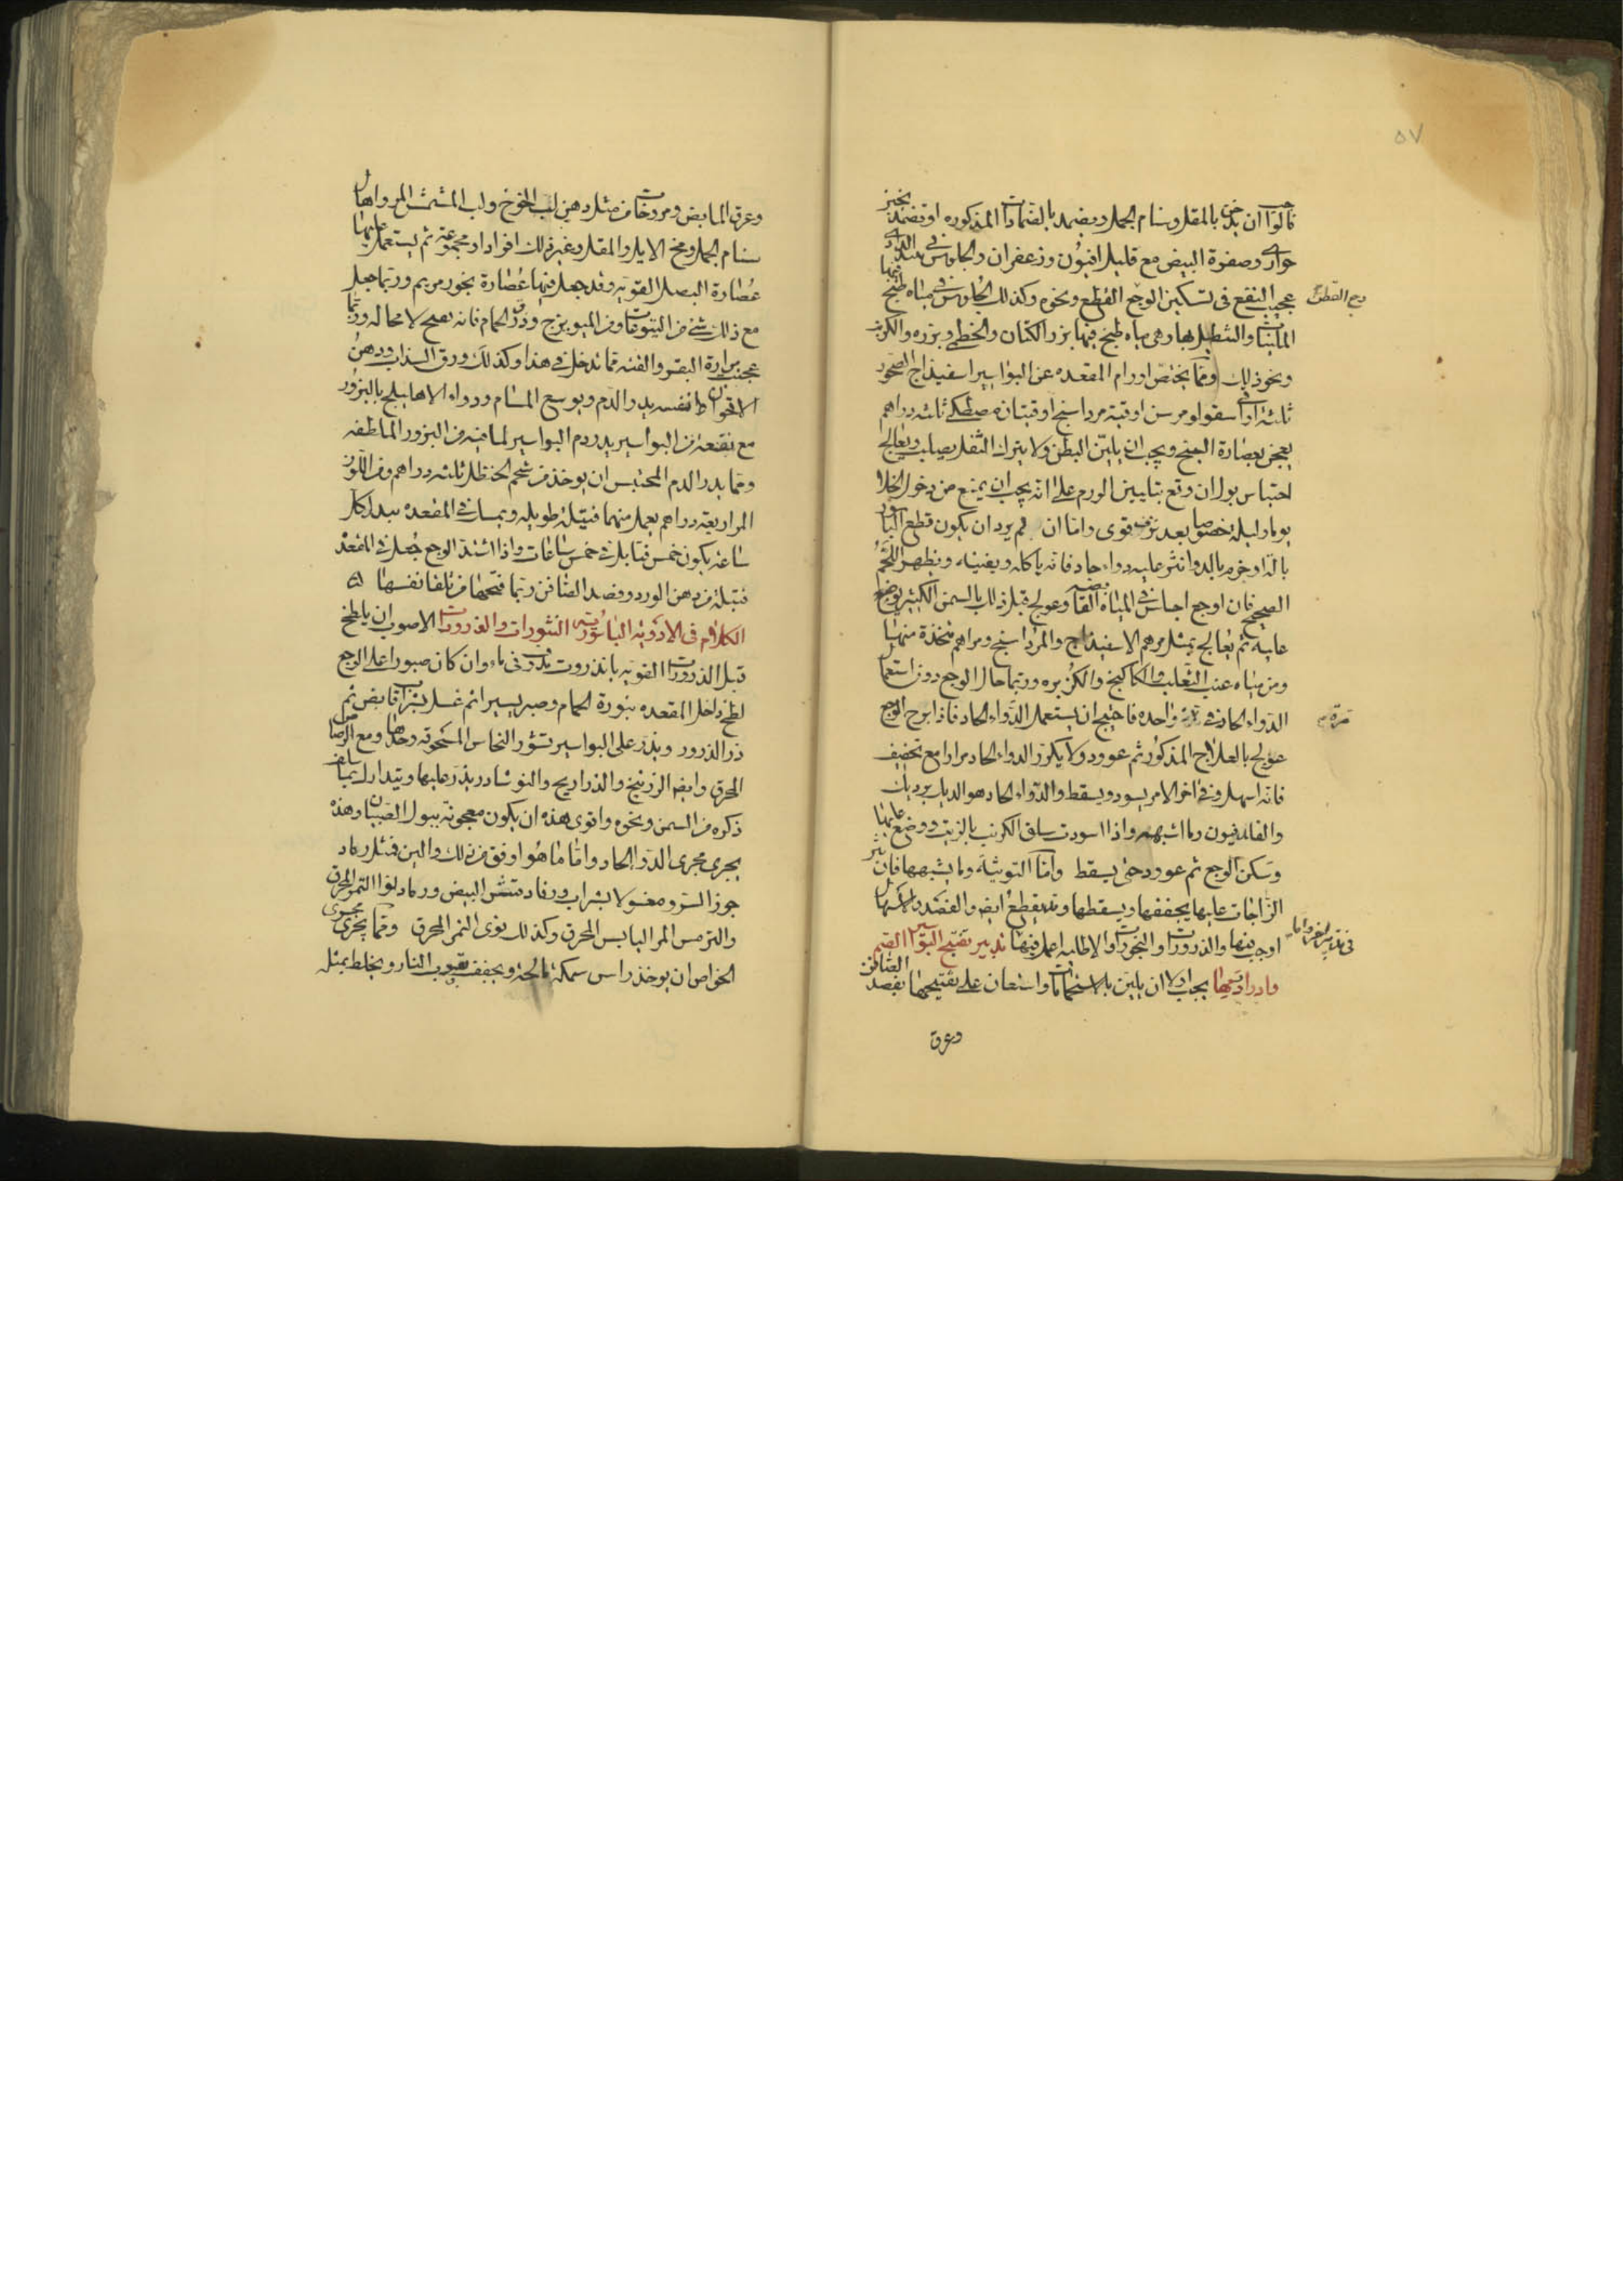 ٥٧
قالوا ان بخر بالمقل وسنام الجمل ويضمد بالضمادات المذكوره او تضمد بخبز
حوارى وصفرة البيض مع قليل افيون وزعفران والجلوس فى
عجيب النفع فى تسكين الوجع القطع ونحوه وكذلك الجلوس فى مياه طبخ فيها
وجع القطع
الملينات والتنطيل بها وهى مياه طبخ فيها بزر الكتان والخطمى وبزره والكرنب
ونحو ذلك ومما يختص اورام المقعده عن البواسير اسفيذاج
ثلثة اواق سقولومرس اوقية مرداسنج اوقيتان مصطكى ثلثه دراهم
يعجن بعصارة البنج ويجب ان يلين البطن ولا يترك الثفل يصلب ويعالج
احتباس بول ان وقع بتليين الورم على انه يجب ان يمنع من دخول الخلا
يوما وليلة خصوصا بعد نزف قوى واما ان لم يرد ان يكون قطع الباسور
بالة او خزم بالدوا نثر عليه دواء حاد فانه ياكله ويفنيه ويظهر اللحم
الصحيح فان اوجع اجلس فى المياه القابضه وعولج قبل ذلك بالسمن الكثير يوضع
عليه ثم يعالج بمثل مرهم الاسفيذاج والمرداسنج ومراهم متخذة منهما
ومن مياه عنب الثعلب والكاكنج والكزبره وربما حال الوجع دون استعمال
الدواء الحاد فى مرة واحده فاحتيج ان يستعمل الدواء الحاد فاذا برح الوجع
مرة
عولج بالعلاج المذكور ثم عوود ولا يكرر الدواء الحاد مرارا مع تخفيف
فانه اسهل وفى اخر الامر يسود ويسقط والدواء الحاد هو الديك برديك
والفلدفيون وما اشبهه واذا اسودت سلق الكرنب بالزيت ووضع عليها
وسكن الوجع ثم عوود حتى يسقط واما التوثية وما يشبهها فان نثر
الزاجات عليها يجففها ويسقطها وقد يقطع ايضا والفصد والاسهال
اوجب فيها والذرورات والبخورات والاطليه اعمل فيها تدبير تفتيح البواسير الصم
وادرار دمها يجب اولا ان يلين بالاستحمامات واستعان على تفتيحها بفصد الصافن
وعرق
وعرق المابض ومروخات من مثل دهن لب الخوخ ولب المشمش المر واهال
سنام الجمل ومخ الايل والمقل وغير ذلك افرادا ومجموعة ثم يستعمل عليها
عصارة البصل القويه وقد جعل فيها عصارة بخور مريم وربما جعل
مع ذلك شئ من اليتوعات ومن الميويزج وذرق الحمام فانه يفتح لا محاله وربما
عجنت بمرارة البقر والقنه مما تدخل فى هذا وكذلك ورق السذاب ودهن
الاقحوان نفسه يدر الدم ويوسع المسام ودواء الاهليلج بالبزور
مع نفعه من البواسير يدر دم البواسير لما فيه من البزور الملطفه
ومما يدر الدم المحتبس ان يوخذ من شحم الحنظل ثلثه دراهم ومن اللوز
المر اربعه دراهم يعمل منهما فتيلة طويله ويمسك فى المقعده يبدل كل
ساعة يكون خمس فتايل فى خمس ساعات واذا اشتد الوجع جعل فى المقعد
فتيلة من دهن الورد وفصد الصافن ربما فتحها من تلقا نفسها
الكلام فى الادويه الباسوريه النثورات والذرورات الاصوب ان يلطخ
قبل الذرورات القويه بانذروت مدوف فى ماء وان كان صبورا على الوجع
لطخ داخل المقعده بنورة الحمام وصبر يسيرا ثم غسل بشراب قابض ثم
ذر الذرور ويذر على البواسير قشور النحاس المسحوقه وحدها ومع الرصاص
المحرق وايضا الزرنيخ والذراريح والنوشادر يذر عليها ويتدارك بما سلف
ذكره من السمن ونحوه واقوى هذه ان يكون معجونة ببول الصبيان وهذه
يجرى مجرى الدوا الحاد واما ما هو اوفق من ذلك والين فمثل رماد
جوز السرو مغسولا بشراب ورماد قشر البيض ورماد نوا التمر المحرق
والترمس المر اليابس المحرق وكذلك نوى التمر المحرق ومما يجرى مجرى
الخواص ان يوخذ راس سمكة مالحة ويجفف بقرب النار ويخلط بمثله